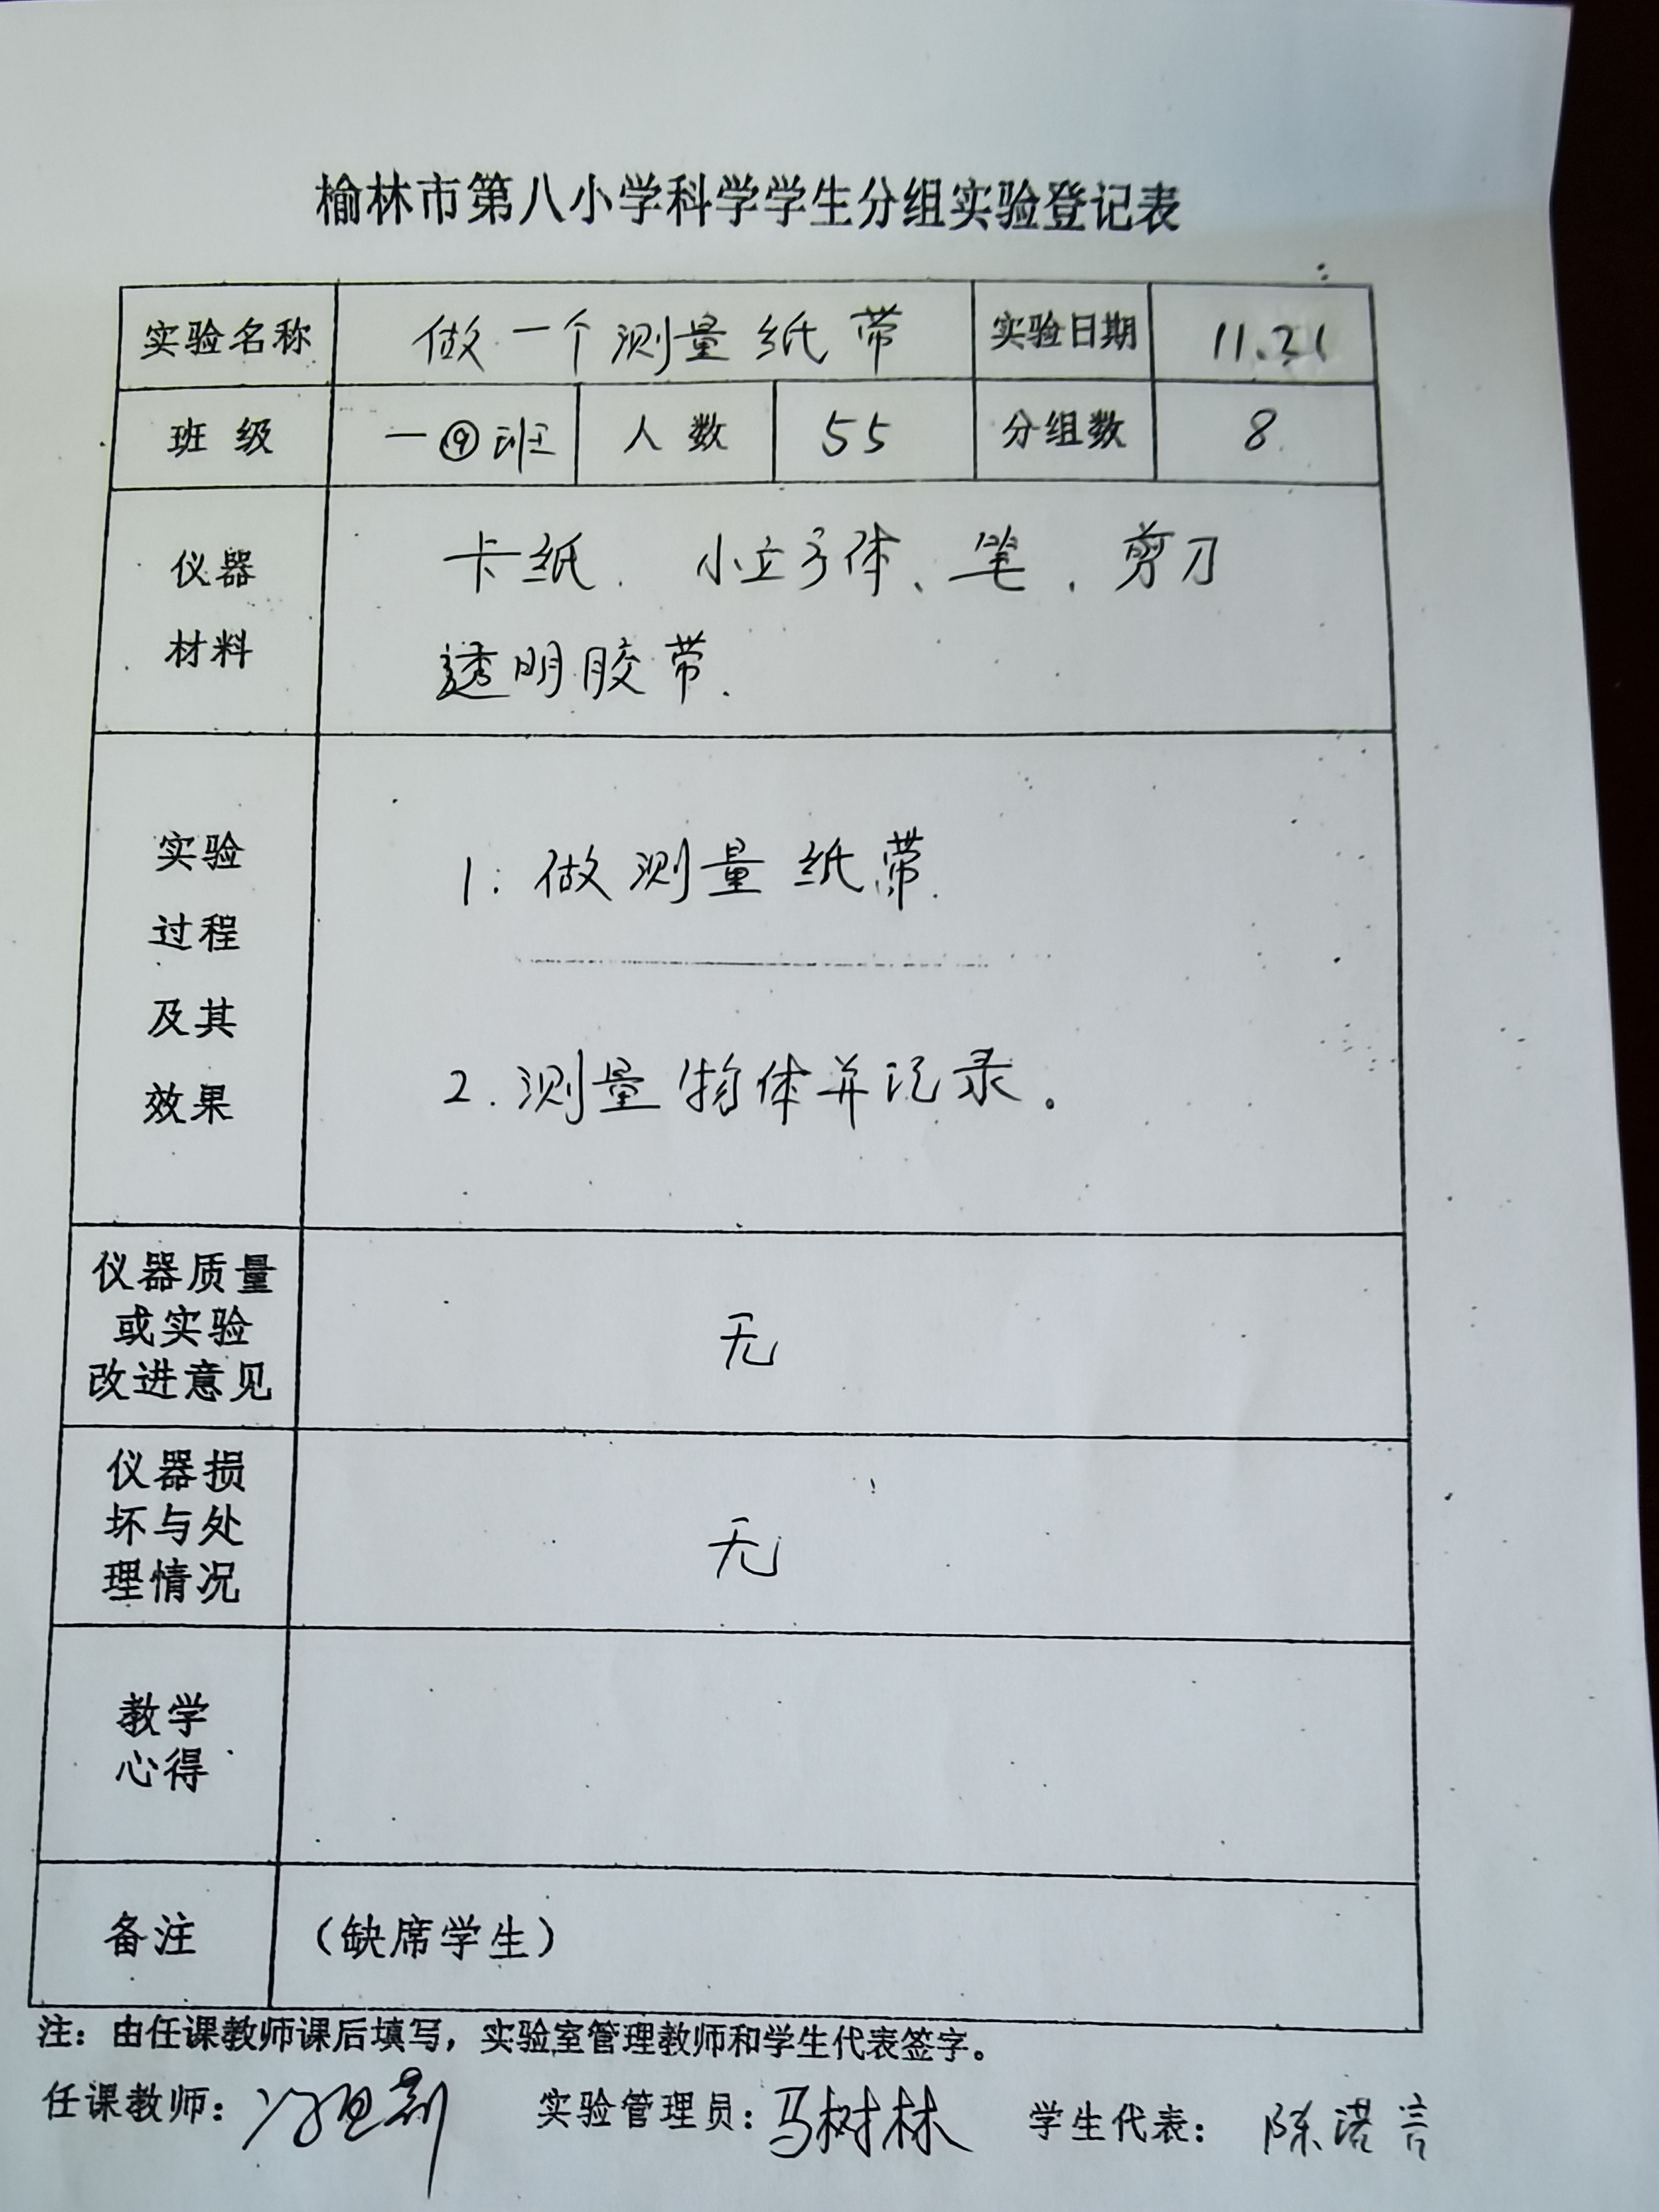 榆林市第八小学科学学生分组实验登记表
实验名称 做一个测量纸带 实验日期 11.21
班级 一⑨班 人数 55 分组数 8
仪器
材料
卡纸、小立方体、笔、剪刀
透明胶带.
实验
过程
及其
效果
1. 做测量纸带.
2. 测量物体并记录。
仪器质量
或实验
改进意见
无
仪器损
坏与处
理情况
无
教学
心得
备注 （缺席学生）
注：由任课教师课后填写，实验室管理教师和学生代表签字。
任课教师： 实验管理员：马树林 学生代表：陈诺言